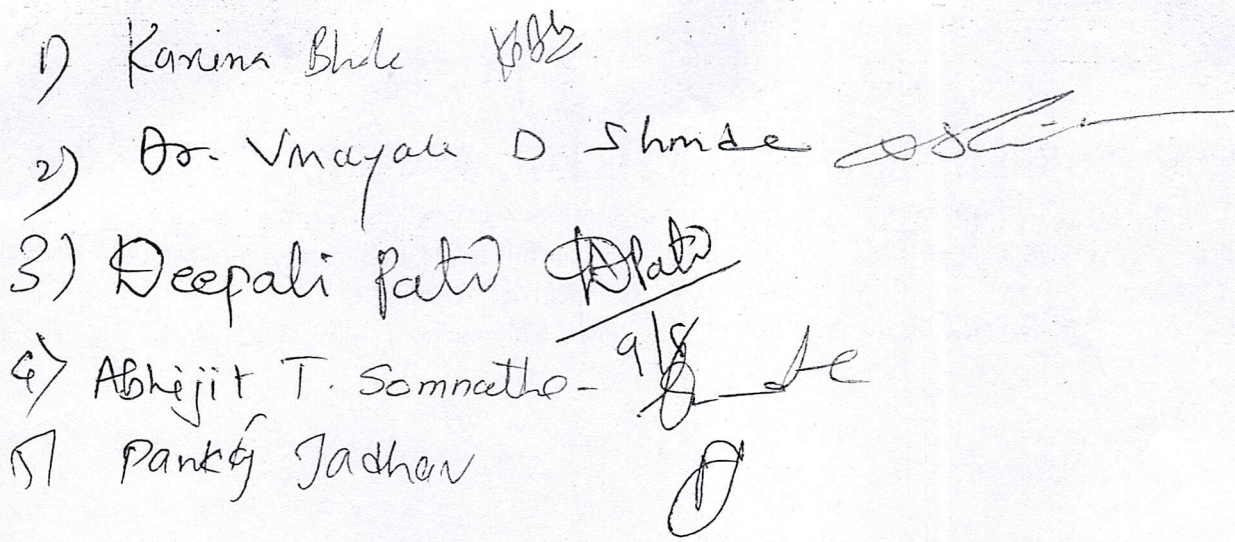 1) Karima Bhole
2) Dr. Vinayak D Shinde
3) Deepali Patil DPatil
9/8
4) Abhijit T. Somnathe -
5) Pankaj Jadhav